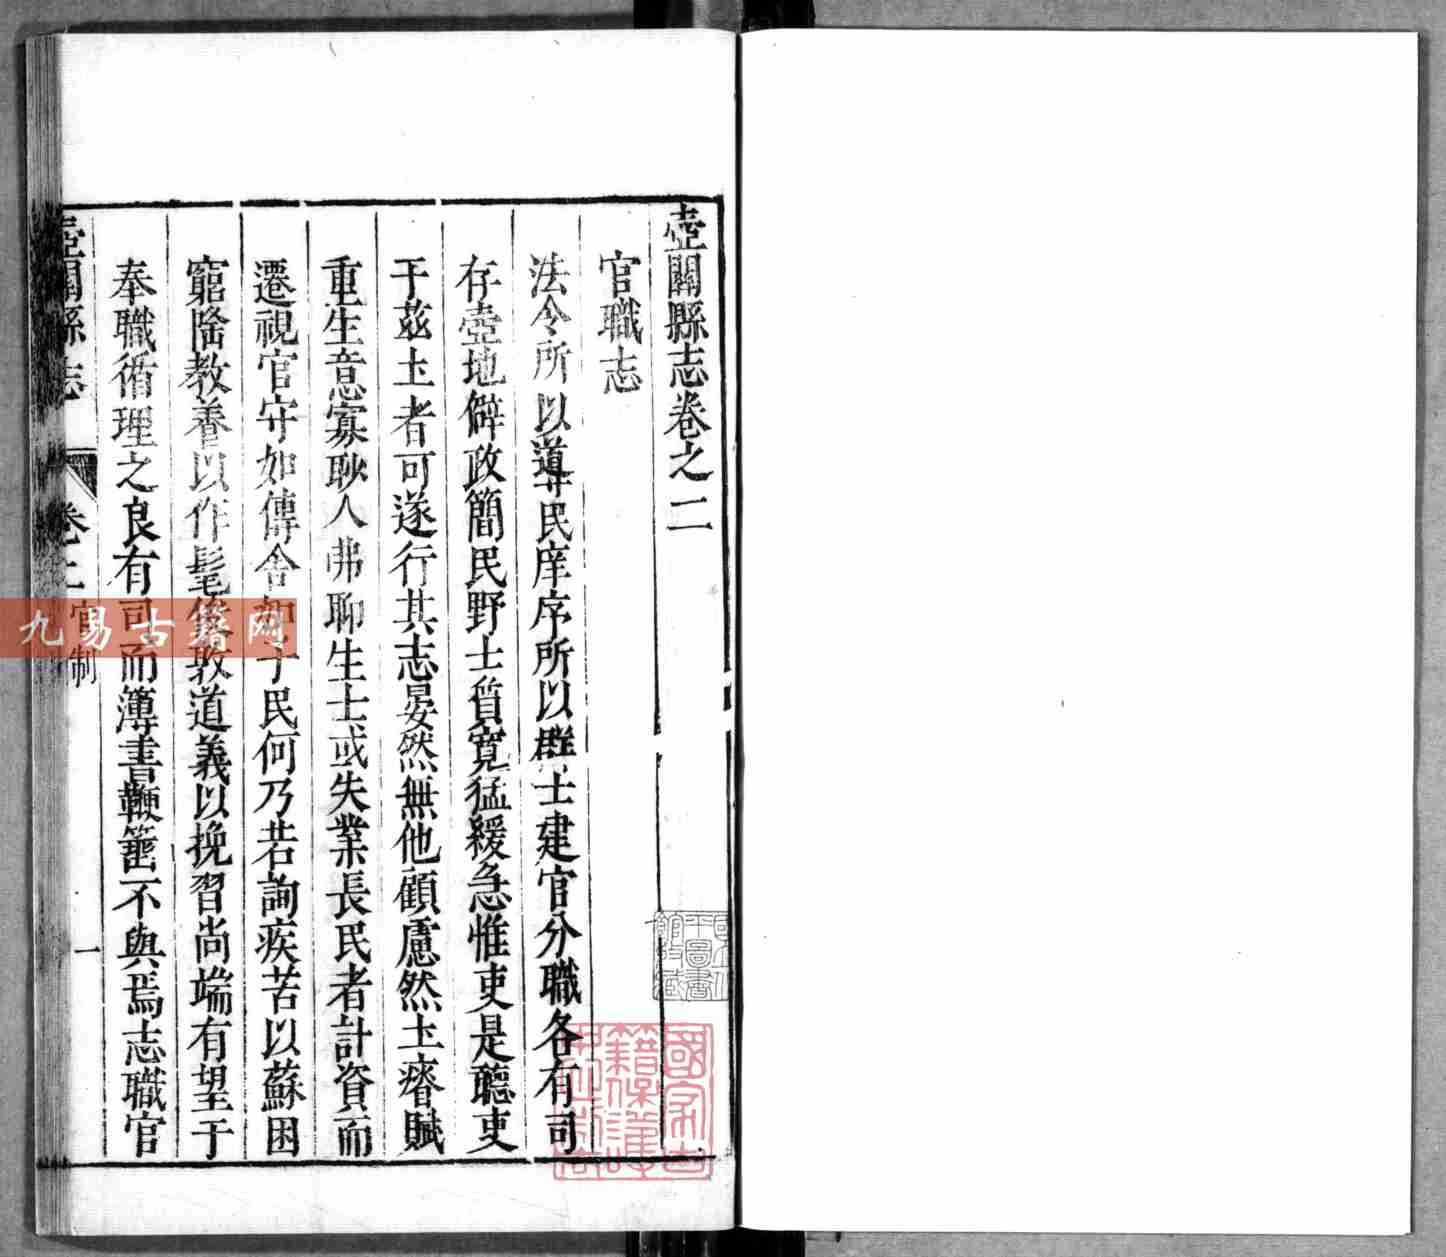 壺關縣志卷之二
官職志
法令所以導民庠序所以群士建官分職各有司
存壺地僻政簡民野士質寬猛緩急惟吏是聽吏
于茲土者可遂行其志晏然無他顧慮然土瘠賦
重生意寡耿人弗聊生士或失業長民者計資而
遷視官守如傳舍如子民何乃若詢疾苦以蘇困
窮隆教養以作髦俊敦道義以挽習尚端有望于
奉職循理之良有司而簿書鞭箠不與焉志職官
壺關縣志 卷二 官制 一
九易古籍网
國家古籍保護